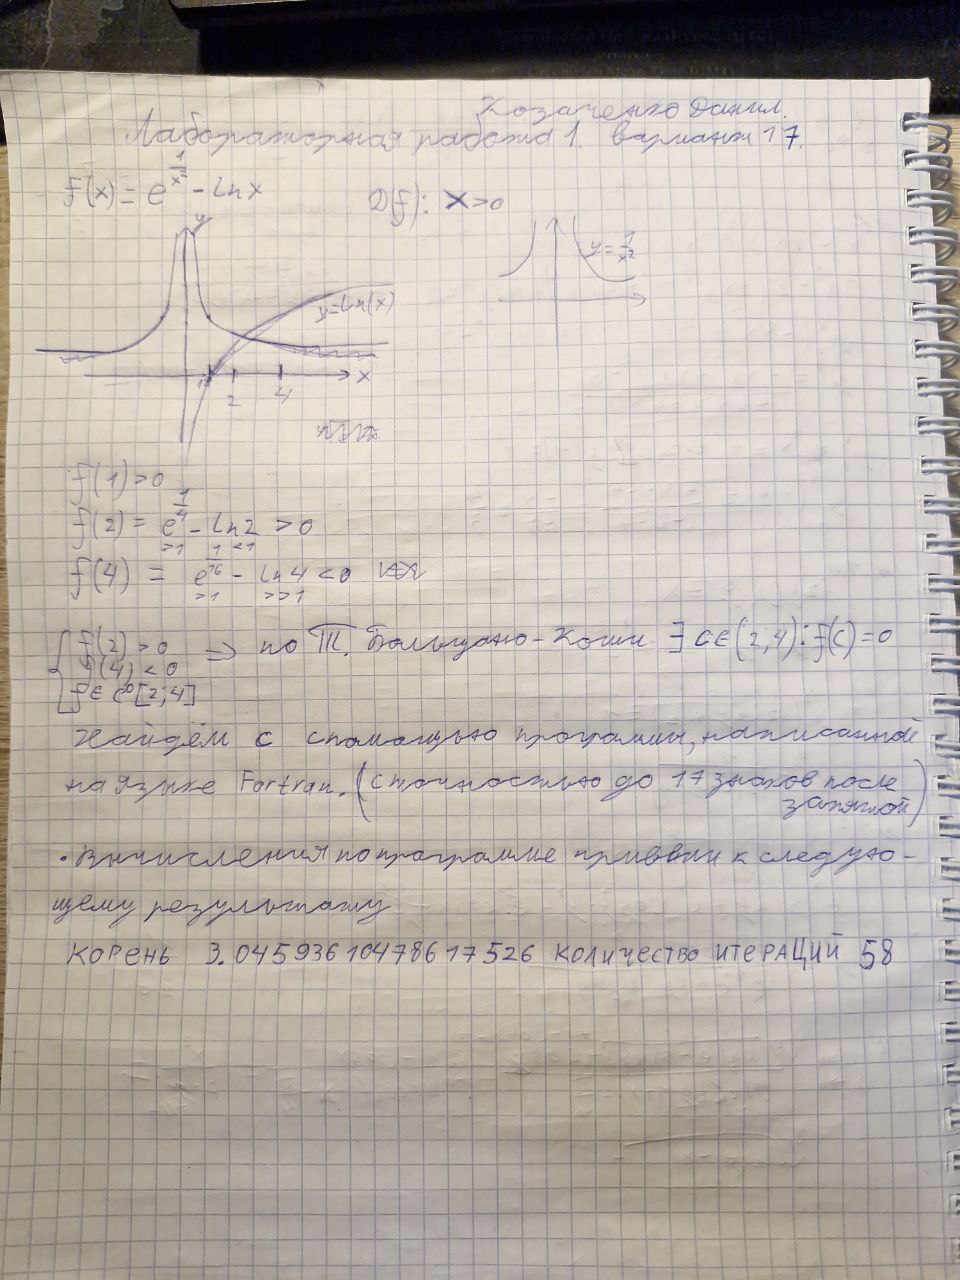 Козаченко Данил.
Лабораторная работа 1. Вариант 17.
f(x) = e^{1/x²} - ln x    D(f): x>0
y
y = 1/x²
y=ln(x)
1 2 4 x
f(1)>0
f(2) = e^{1/4} - ln2 > 0
>1 <1
f(4) = e^{1/16} - ln4 < 0
>1 >>1
{ f(2) > 0
f(4) < 0
f ∈ C⁰[2;4]
⇒ по Т. Больцано-Коши ∃ c∈(2;4): f(c)=0
Найдём с спомощью программы, написанной
на языке Fortran. (с точностью до 17 знаков после
запятой)
• Вычисления по программе привели к следую-
щему результату
КОРЕНЬ 3.04593610478617526 КОЛИЧЕСТВО ИТЕРАЦИЙ 58